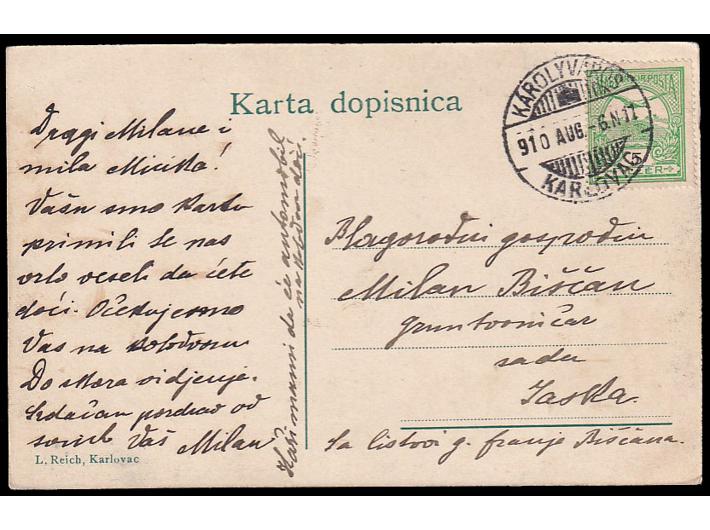 Karta dopisnica
KÁROLYVÁROS
910 AUG. -6. N 12
KARLOVAC
POSTA
FILLÉR
Dragi Milane i
mila Micika!
Vašu smo kartu
primili te nas
vrlo veseli da ćete
doći. Očekujemo
Vas na kolodvoru
Do skora vidjenja.
Srdačan pozdrav od
svieh Vaš Milan
Kaži mami da će automobil
na kolodvor doći.
Blagorodni gospodin
Milan Biščan
gruntovničar
sada
Jaska.
Sa listovi g. Franje Biščana.
L. Reich, Karlovac